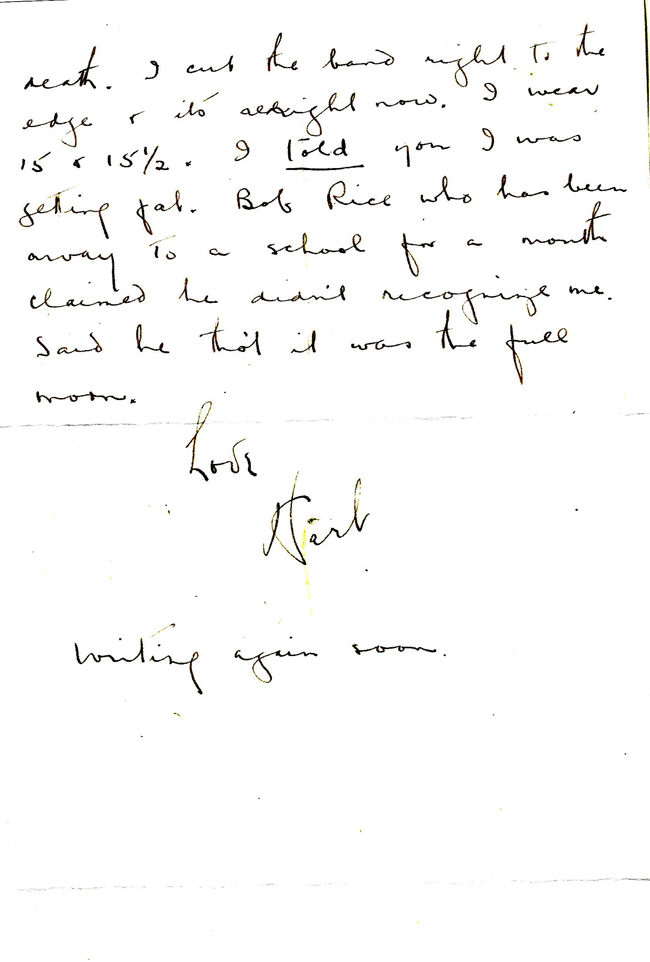 death. I cut the band right to the
edge & it's alright now. I wear
15 & 15½. I told you I was
getting fat. Bob Rice who has been
away to a school for a month
claimed he didn't recognize me.
Said he tho't it was the full
moon.
Love
Harb
Writing again soon.